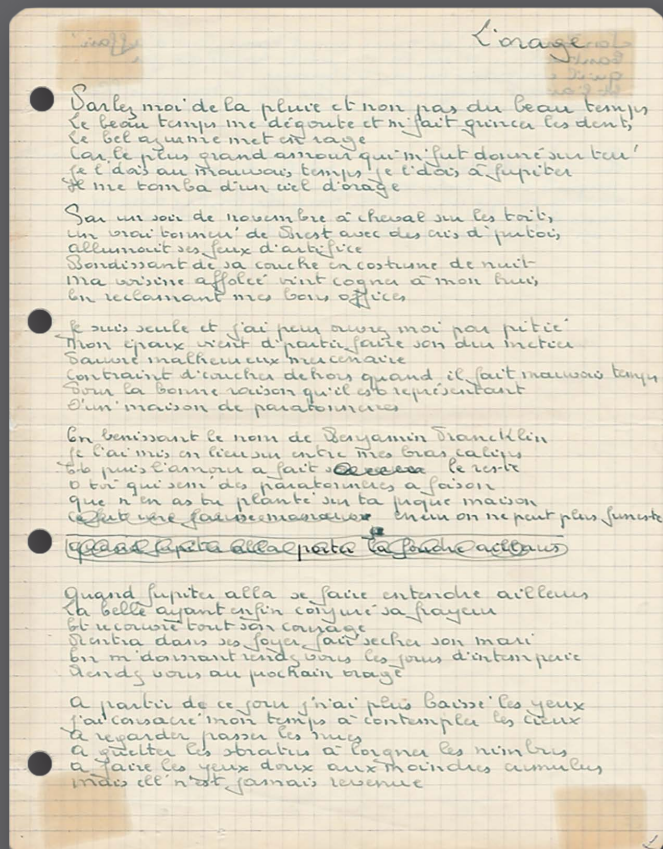 L'orage
Parlez moi de la pluie et non pas du beau temps
Le beau temps me dégoute et m'fait grincer les dents
Le bel azur me met en rage
Car le plus grand amour qui m'fut donné sur terr'
Je l'dois au mauvais temps je l'dois à Jupiter
Il me tomba d'un ciel d'orage
Par un soir de novembre à cheval sur les toits
un vrai tonnerr' de Brest avec des cris d'putois
allumait ses feux d'artifice
Bondissant de sa couche en costume de nuit
ma voisine affolée vint cogner à mon huis
En reclamant mes bons offices
Je suis seule et j'ai peur ouvrez moi par pitié
mon époux vient d'partir faire son dur metier
Pauvre malheureux mercenaire
Contraint d'coucher dehors quand il fait mauvais temps
Pour la bonne raison qu'il est représentant
D'un' maison de paratonnerres
En benissant le nom de Benjamin Francklin
Je l'ai mis en lieu sur entre mes bras calins
Et puis l'amour a fait le reste
O toi qui sem' des paratonnerres a foison
que n'en as tu planté sur ta propre maison
erreur on ne peut plus funeste
quand Jupiter alla porter la foudre ailleurs
Quand Jupiter alla se faire entendre ailleurs
La belle ayant enfin conjuré sa frayeur
Et recouvré tout son courage
Rentra dans ses foyer fair' secher son mari
En m'donnant rendez vous les jours d'intemperie
Rendez vous au prochain orage
A partir de ce jour j'n'ai plus baissé les yeux
J'ai consacré mon temps à contempler les cieux
A regarder passer les nues
A guetter les stratus à lorgner les nimbus
A faire les yeux doux aux moindres cumulus
mais ell' n'est jamais revenue